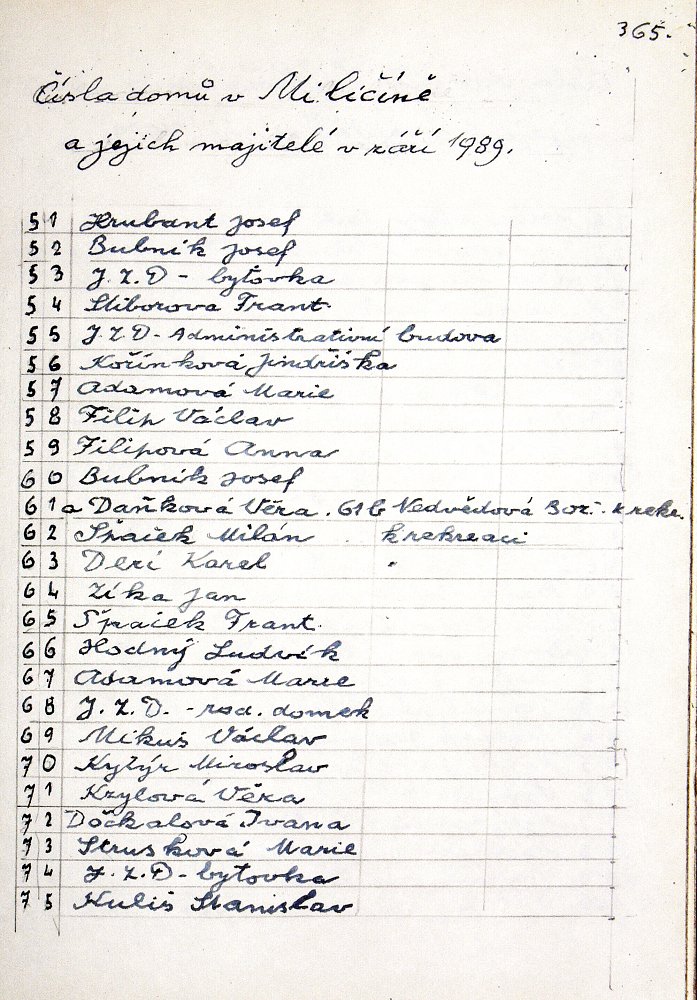 365.
Čísla domů v Miličíně
a jejich majitelé v září 1989.
51 Hrubant Josef
52 Bubník Josef
53 J.Z.D - bytovka
54 Stiborova Frant.
55 J.Z.D - Administrativní budova
56 Kořínková Jindřiška
57 Adamová Marie
58 Filip Václav
59 Filipová Anna
60 Bubník Josef
61 a Daňková Věra . 61 b Nedvědová Bož. k rekr.
62 Špaček Milán . k rekreaci
63 Derí Karel "
64 Zíka Jan
65 Špaček Frant.
66 Hodný Ludvík
67 Adamová Marie
68 J.Z.D. - rod. domek
69 Mikuš Václav
70 Kytýr Miroslav
71 Krylová Věra
72 Dočkalová Ivana
73 Strusková Marie
74 J.Z.D - bytovka
75 Kuliš Stanislav